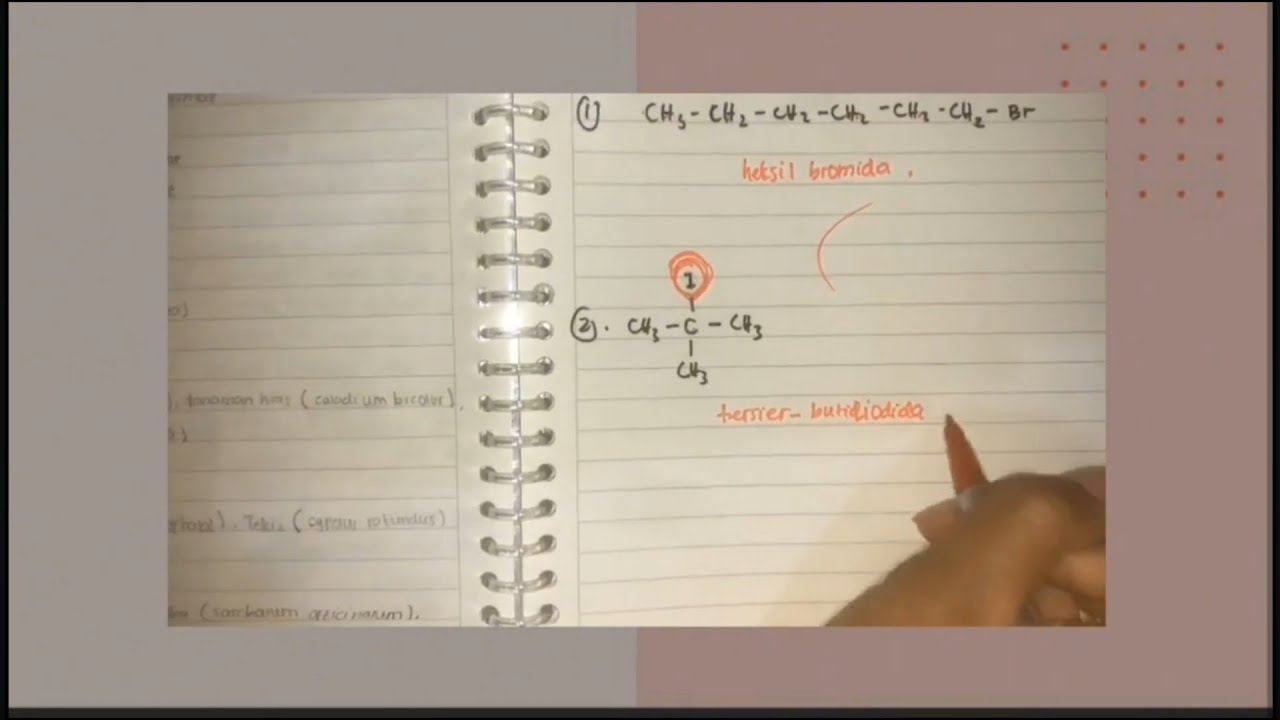 ), tanaman hias (caladium bicolor),
). Teki (cyprus rotundus)
(saccharum officinarum).
① CH3 - CH2 - CH2 - CH2 - CH2 - CH2 - Br
heksil bromida.
I
②. CH3 - C - CH3
CH3
tersier - butiliodida